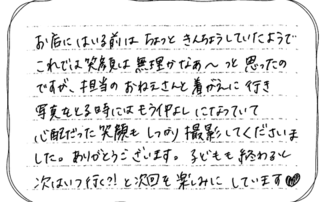 お店にはいる前は ちょっと きんちょうしていたようで
これでは笑顔は無理かなぁ〜 っと 思ったの
ですが、担当の おねえさんと着がえに 行き
写真をとる時には もう仲よしになっていて
心配だった 笑顔も しっかり 撮影してくださいま
した。ありがとうございます。子どもも 終わると
次はいつ行く?! と次回を 楽しみに しています